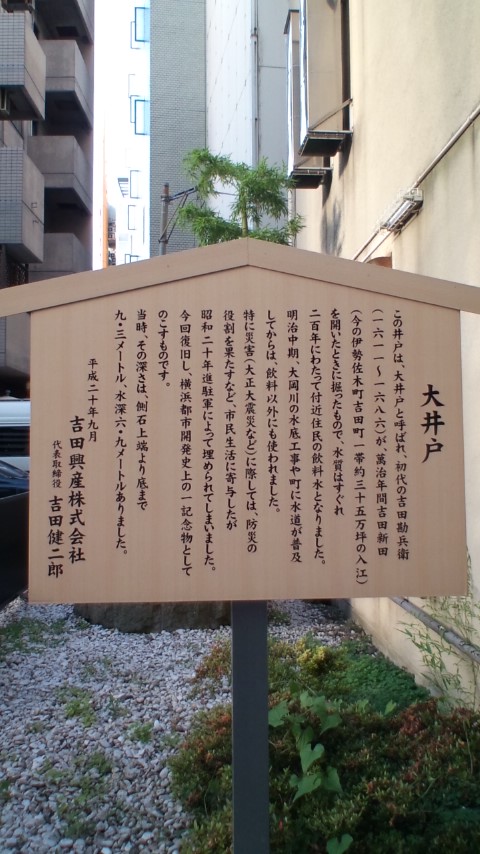 大井戸
この井戸は、大井戸と呼ばれ、初代の吉田勘兵衛
(一六一一～一六八六)が、萬治年間吉田新田
(今の伊勢佐木町吉田町一帯約三十五万坪の入江)
を開いたときに掘ったもので、水質はすぐれ
二百年にわたって付近住民の飲料水となりました。
明治中期、大岡川の水底工事や町に水道が普及
してからは、飲料以外にも使われました。
特に災害(大正大震災など)に際しては、防災の
役割を果たすなど、市民生活に寄与したが
昭和二十年進駐軍によって埋められてしまいました。
今回復旧し、横浜都市開発史上の一記念物として
のこすものです。
当時、その深さは、側石上端より底まで
九・三メートル、水深六・九メートルありました。
平成二十年九月
吉田興産株式会社
代表取締役 吉田健二郎